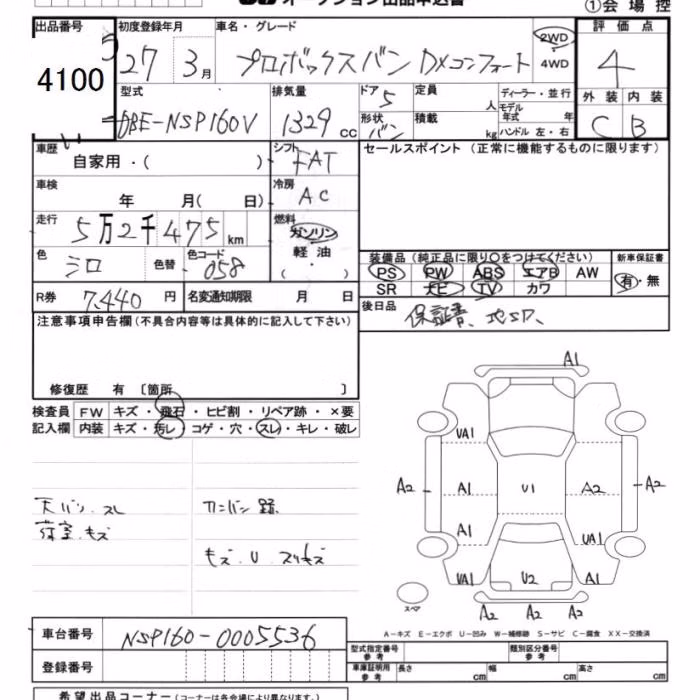 オークション出品申込書
①会場控
出品番号 初度登録年月 車名・グレード 評価点
4100 27年 3月 プロボックスバン DXコンフォート 2WD 4WD 4
型式 排気量 ドア 5 定員 人 ディーラー・並行 外装 内装
DBE-NSP160V 1329cc 形状 バン 積載 kg モデル年式 年 ハンドル 左・右 C B
車歴 自家用・( ) シフト FAT セールスポイント (正常に機能するものに限ります)
車検 年 月( 日) 冷房 AC
走行 5万2千475km 燃料 ガソリン 軽油 ( ・ )
色 シロ 色替 色コード 058
装備品 (純正品に限り〇をつけてください) 新車保証書
PS PW ABS エアB AW 有・無
SR ナビ TV カワ
R券 7,440円 名変通知期限 月 日 後日品 保証書、地SD、
注意事項申告欄(不具合内容等は具体的に記入して下さい)
修復歴 有 〔箇所 〕
検査員 FW キズ・飛石・ヒビ割・リペア跡・×要
記入欄 内装 キズ・汚レ・コゲ・穴・スレ・キレ・破レ
天バン、スレ
荷室、キズ
カンバン跡、
キズ、U、スリキズ
A1
VA1
A2 A1 U1 A2 A2
A1 UA1
VA1 U2 A1
スペア
A2 A2 A2
A-キズ E-エクボ U-凹み W-補修跡 S-サビ C-腐食 XX-交換済
車台番号 NSP160-0005536
登録番号
型式指定番号 参考 類別区分番号 参考
車庫証明用 参考 長さ cm 幅 cm 高さ cm
希望出品コーナー(コーナーは各会場により異なります。)